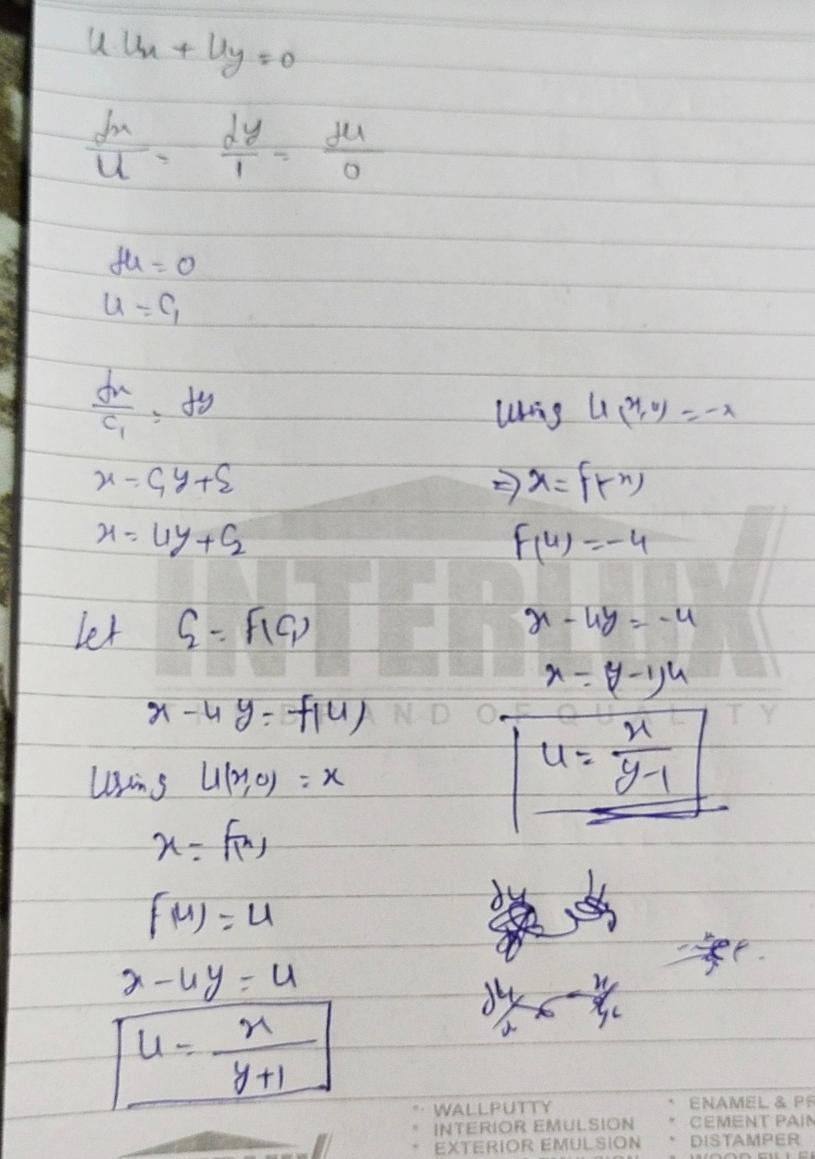 u ux + uy = 0
dx/u = dy/1 = du/0
du = 0
u = c₁
dx/c₁ = dy
x = c₁y + c₂
x = uy + c₂
Let c₂ = f(c₁)
x - uy = f(u)
Using u(x,0) = x
x = f(x)
f(u) = u
x - uy = u
u = x/(y+1)
Using u(x,0) = -x
⇒ x = f(-x)
f(u) = -u
x - uy = -u
x = (y-1)u
u = x/(y-1)
INTERLUX
THE BRAND OF QUALITY
• WALLPUTTY
• INTERIOR EMULSION
• EXTERIOR EMULSION
• ENAMEL & PR
• CEMENT PAIN
• DISTAMPER